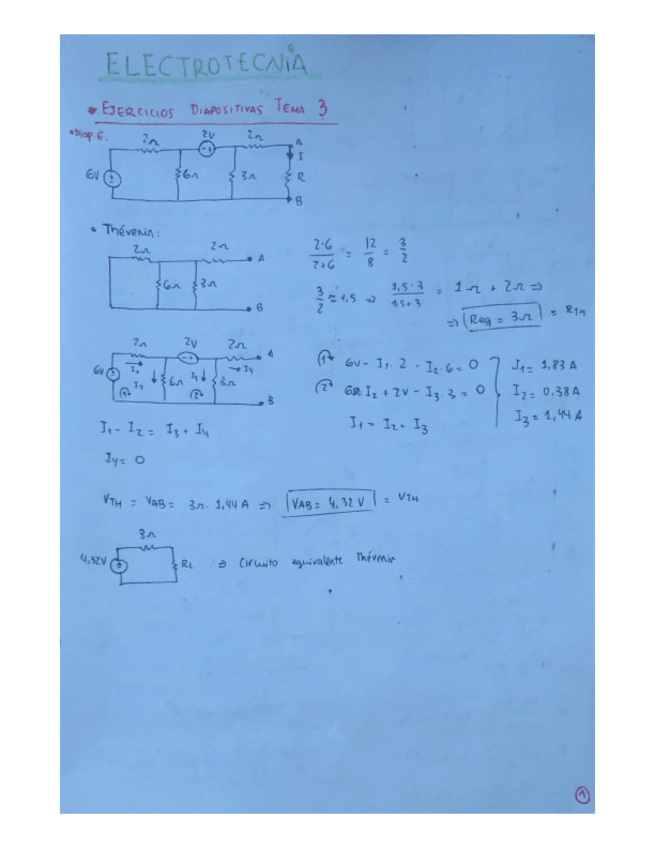 ELECTROTECNIA
• EJERCICIOS DIAPOSITIVAS TEMA 3
• Diap 6:
2Ω 2V 2Ω A
I
6V 6Ω 3Ω R
B
• Thévenin:
2Ω 2Ω A
6Ω 3Ω
B
2·6 / 2+6 = 12 / 8 = 3 / 2
3 / 2 ≈ 1,5 ⇒ 1,5·3 / 1,5+3 = 1Ω + 2Ω ⇒
⇒ Req = 3Ω = RTH
2Ω 2V 2Ω A
I1 I4
6V 6Ω 3Ω
1 2 B
1 6V - I1·2 - I2·6 = 0
2 6Ω I2 + 2V - I3·3 = 0
I1 = I2 + I3
I1 = 1,83 A
I2 = 0,38 A
I3 = 1,44 A
I1 - I2 = I3 + I4
I4 = 0
VTH = VAB = 3Ω · 1,44 A ⇒ VAB = 4,32 V = VTH
3Ω
4,32V RL ⇒ Circuito equivalente Thévenin
1